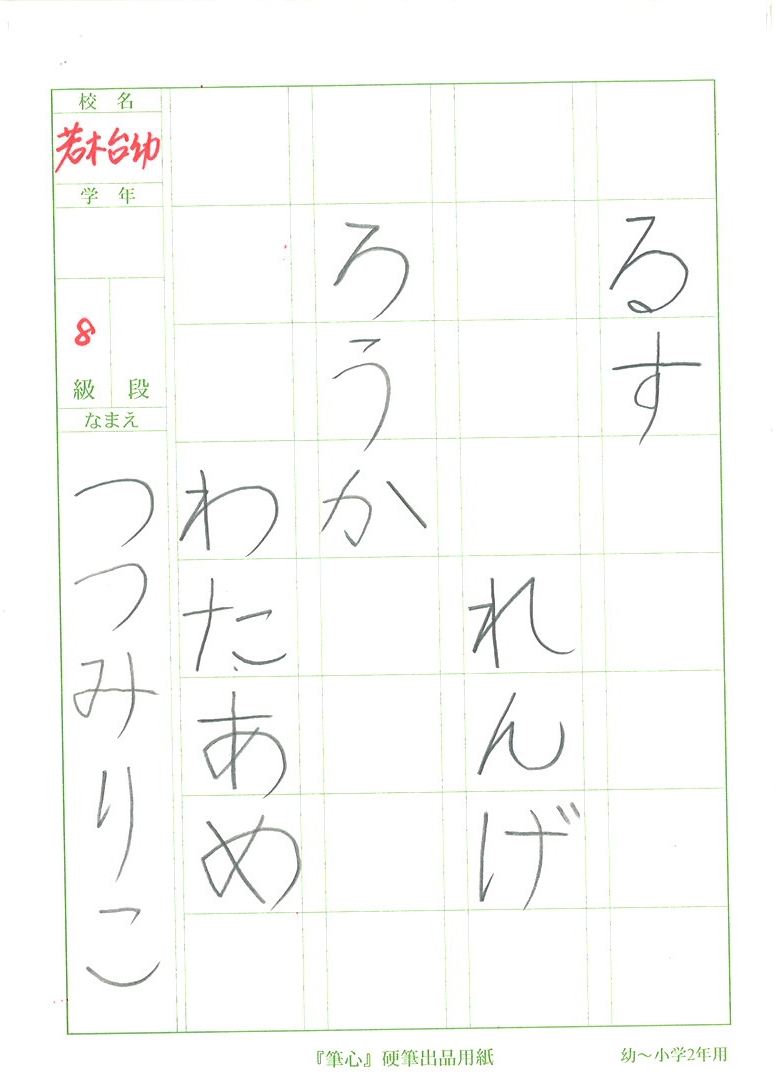 るす
れんげ
ろうか
わたあめ
校名
若木台幼
学年
8
級 段
なまえ
つつみりこ
『筆心』硬筆出品用紙
幼～小学2年用